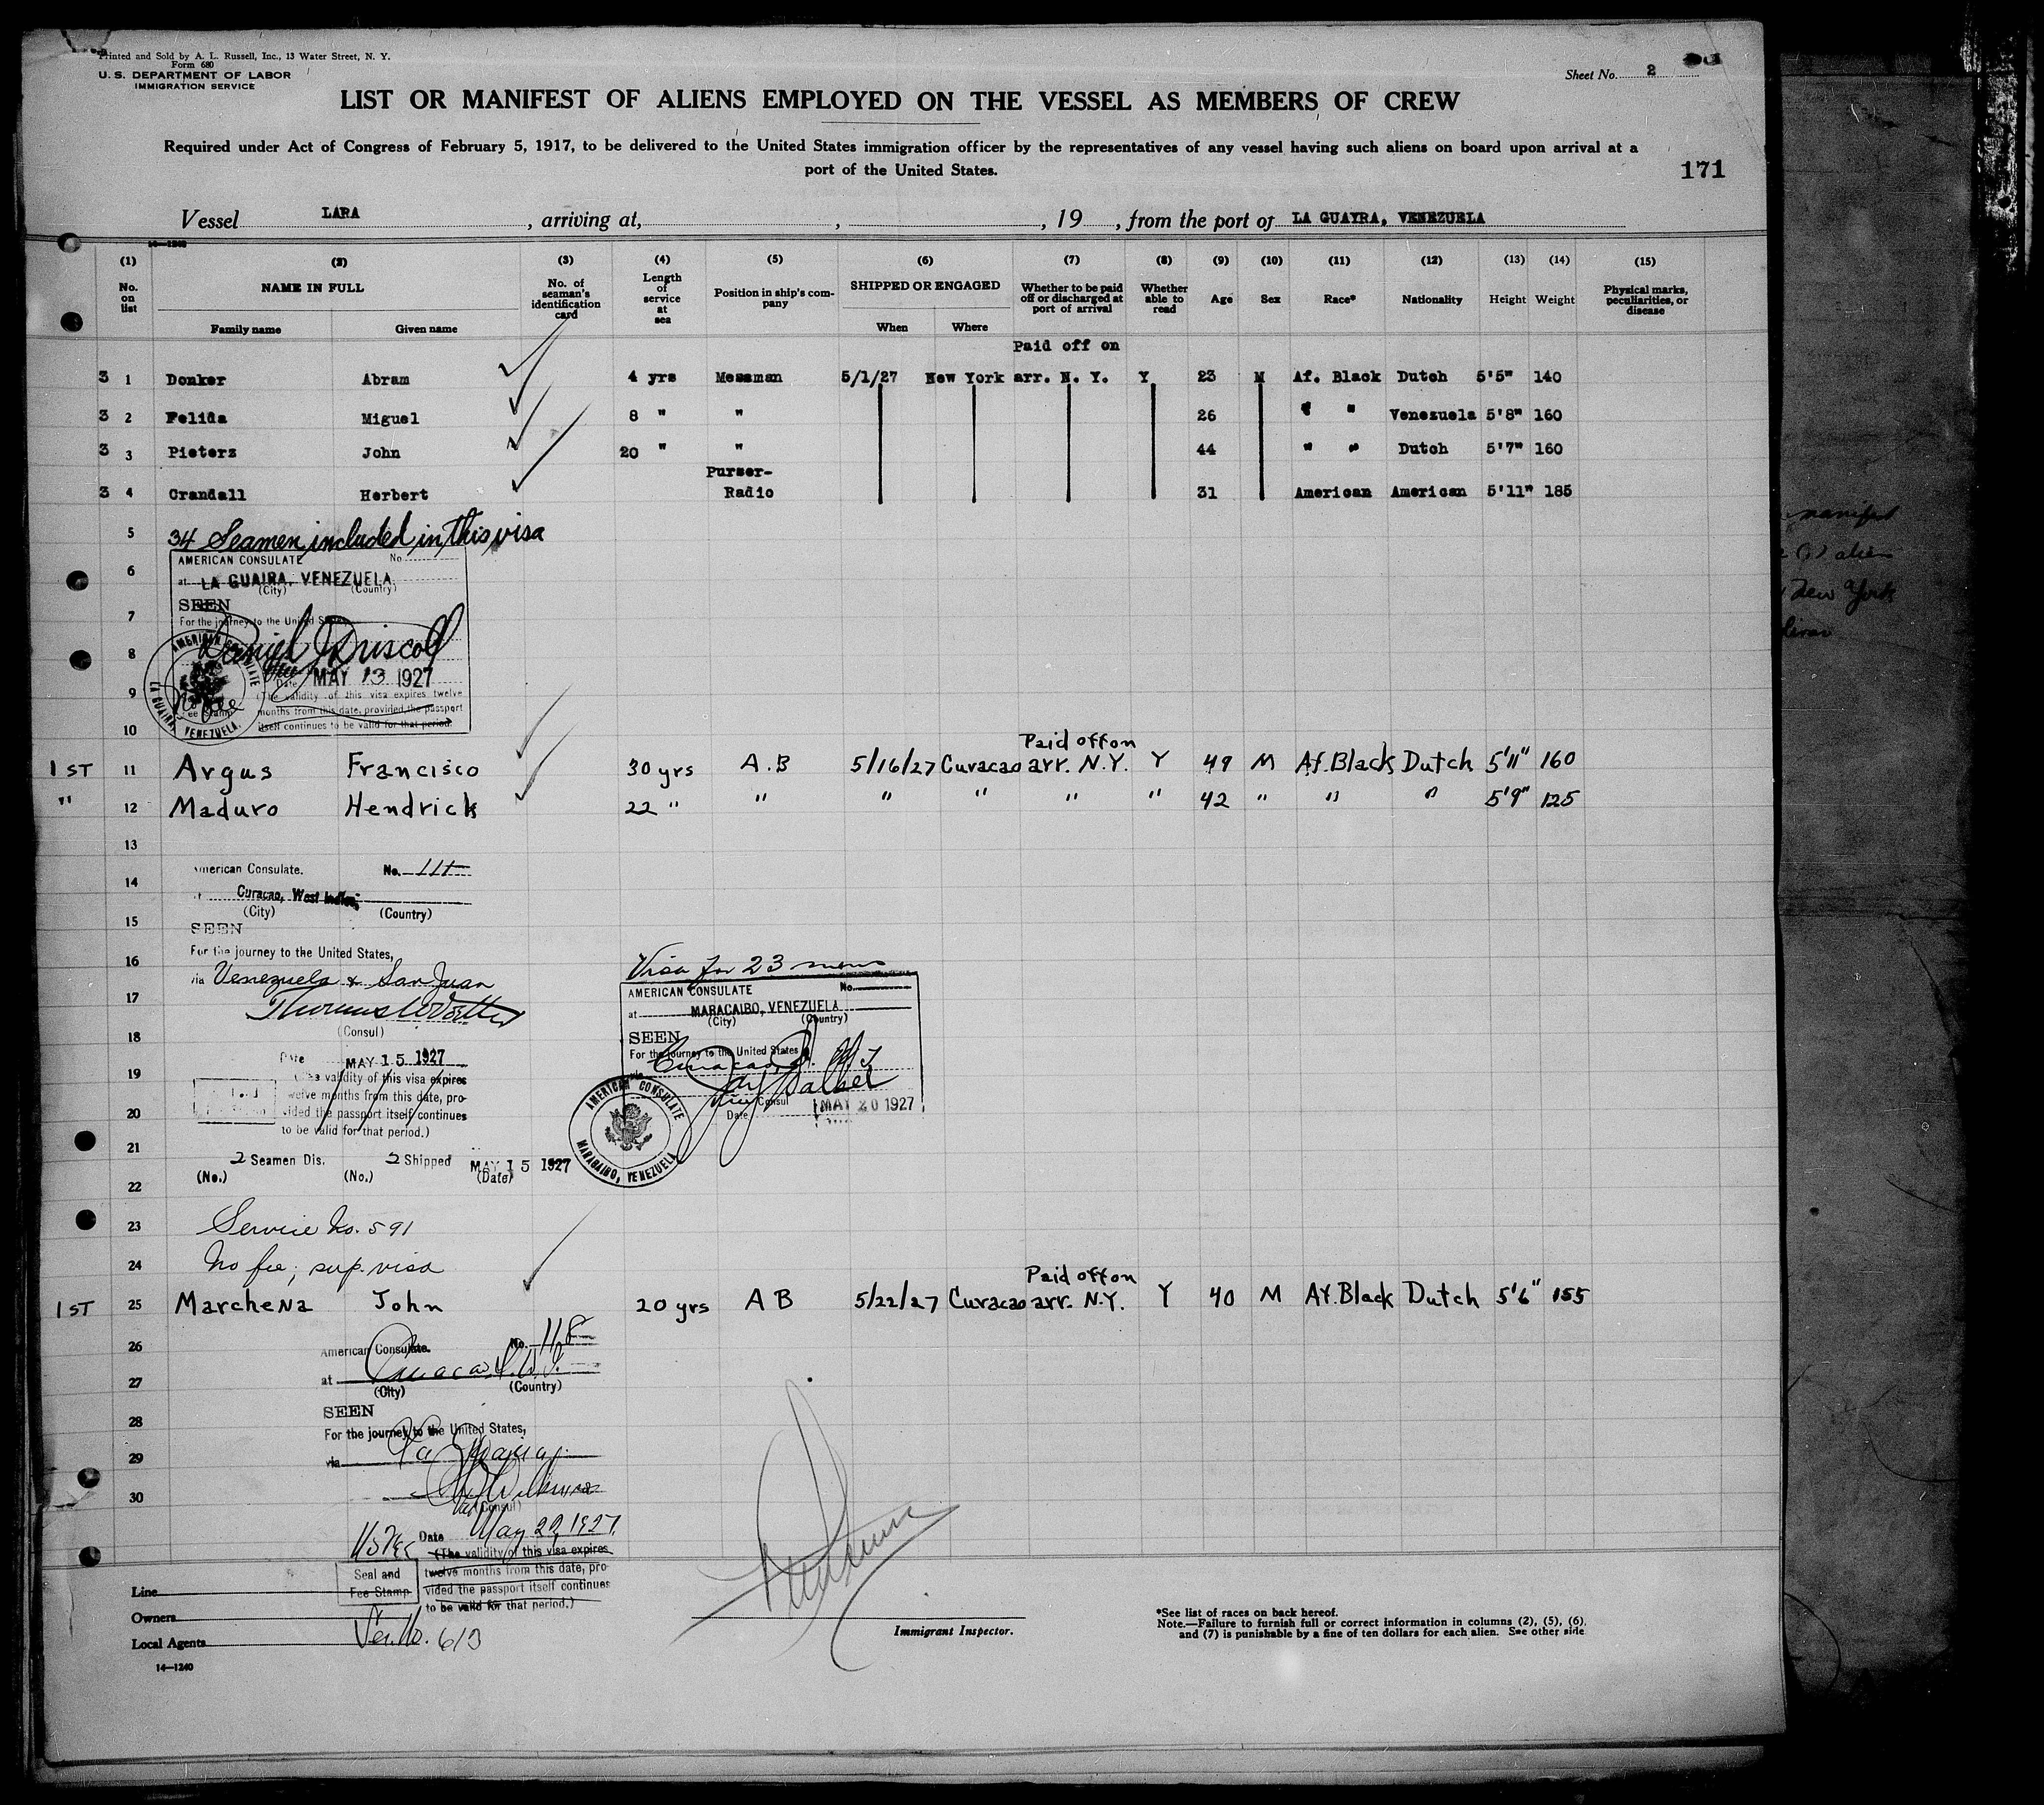 Printed and Sold by A. L. Russell, Inc., 13 Water Street, N. Y.
Form 680
U. S. DEPARTMENT OF LABOR
IMMIGRATION SERVICE
Sheet No. 2
LIST OR MANIFEST OF ALIENS EMPLOYED ON THE VESSEL AS MEMBERS OF CREW
Required under Act of Congress of February 5, 1917, to be delivered to the United States immigration officer by the representatives of any vessel having such aliens on board upon arrival at a
port of the United States.
171
Vessel LARA , arriving at, , , 19 , from the port of LA GUAYRA, VENEZUELA
14—1240
(1) (2) (3) (4) (5) (6) (7) (8) (9) (10) (11) (12) (13) (14) (15)
No. on list NAME IN FULL Family name Given name No. of seaman's identification card Length of service at sea Position in ship's company SHIPPED OR ENGAGED When Where Whether to be paid off or discharged at port of arrival Whether able to read Age Sex Race* Nationality Height Weight Physical marks, peculiarities, or disease
Paid off on
3 1 Donker Abram 4 yrs Messman 5/1/27 New York arr. N. Y. Y 23 M Af. Black Dutch 5'5" 140
3 2 Felida Miguel 8 " " 26 " " Venezuela 5'8" 160
3 3 Pieters John 20 " " 44 " " Dutch 5'7" 160
Purser-
3 4 Crandall Herbert Radio 31 American American 5'11" 185
5 34 Seamen included in this visa
AMERICAN CONSULATE No
6 at LA GUAIRA, VENEZUELA
(City) (Country)
SEEN
7 For the journey to the United States
8 Daniel J Driscoll
Date MAY 13 1927
9 (The validity of this visa expires twelve
No fee
Fee Stamp months from this date, provided the passport
10 itself continues to be valid for that period.
AMERICAN CONSULATE LA GUAIRA, VENEZUELA.
Paid off on
1ST 11 Argus Francisco 30 yrs A.B 5/16/27 Curacao arr. N.Y. Y 49 M Af. Black Dutch 5'11" 160
" 12 Maduro Hendrick 22 " " " " " " 42 " " " 5'9" 125
13
American Consulate. No. 111
14
Curacao, West Indies,
(City) (Country)
15
SEEN
For the journey to the United States,
16
via Venezuela & San Juan
17
(Consul)
18
Date MAY 15 1927
19 (The validity of this visa expires
twelve months from this date, pro-
20 vided the passport itself continues
to be valid for that period.)
21
2 Seamen Dis. 2 Shipped MAY 15 1927
(No.) (No.) (Date)
22
Visa for 23 men
AMERICAN CONSULATE No.
at MARACAIBO, VENEZUELA
(City) (Country)
SEEN
For the journey to the United States
via Curacao
Consul
Date MAY 20 1927
AMERICAN CONSULATE MARACAIBO, VENEZUELA
23 Service No. 591
24 No fee; sup. visa
Paid off on
1ST 25 Marchena John 20 yrs A B 5/22/27 Curacao arr. N.Y. Y 40 M Af. Black Dutch 5'6" 155
26 American Consulate. No. 118
27 at Curacao, D.W.I.
(City) (Country)
28 SEEN
For the journey to the United States,
29 via La Guaira
30
(Consul)
No Fee Date May 22, 1927.
(The validity of this visa expires
Seal and twelve months from this date, pro-
Fee Stamp vided the passport itself continues
to be valid for that period.)
Ser. No. 613
Line
Owners
Local Agents
14—1240
Immigrant Inspector.
*See list of races on back hereof.
Note.—Failure to furnish full or correct information in columns (2), (5), (6),
and (7) is punishable by a fine of ten dollars for each alien. See other side
manifest
alien
New York